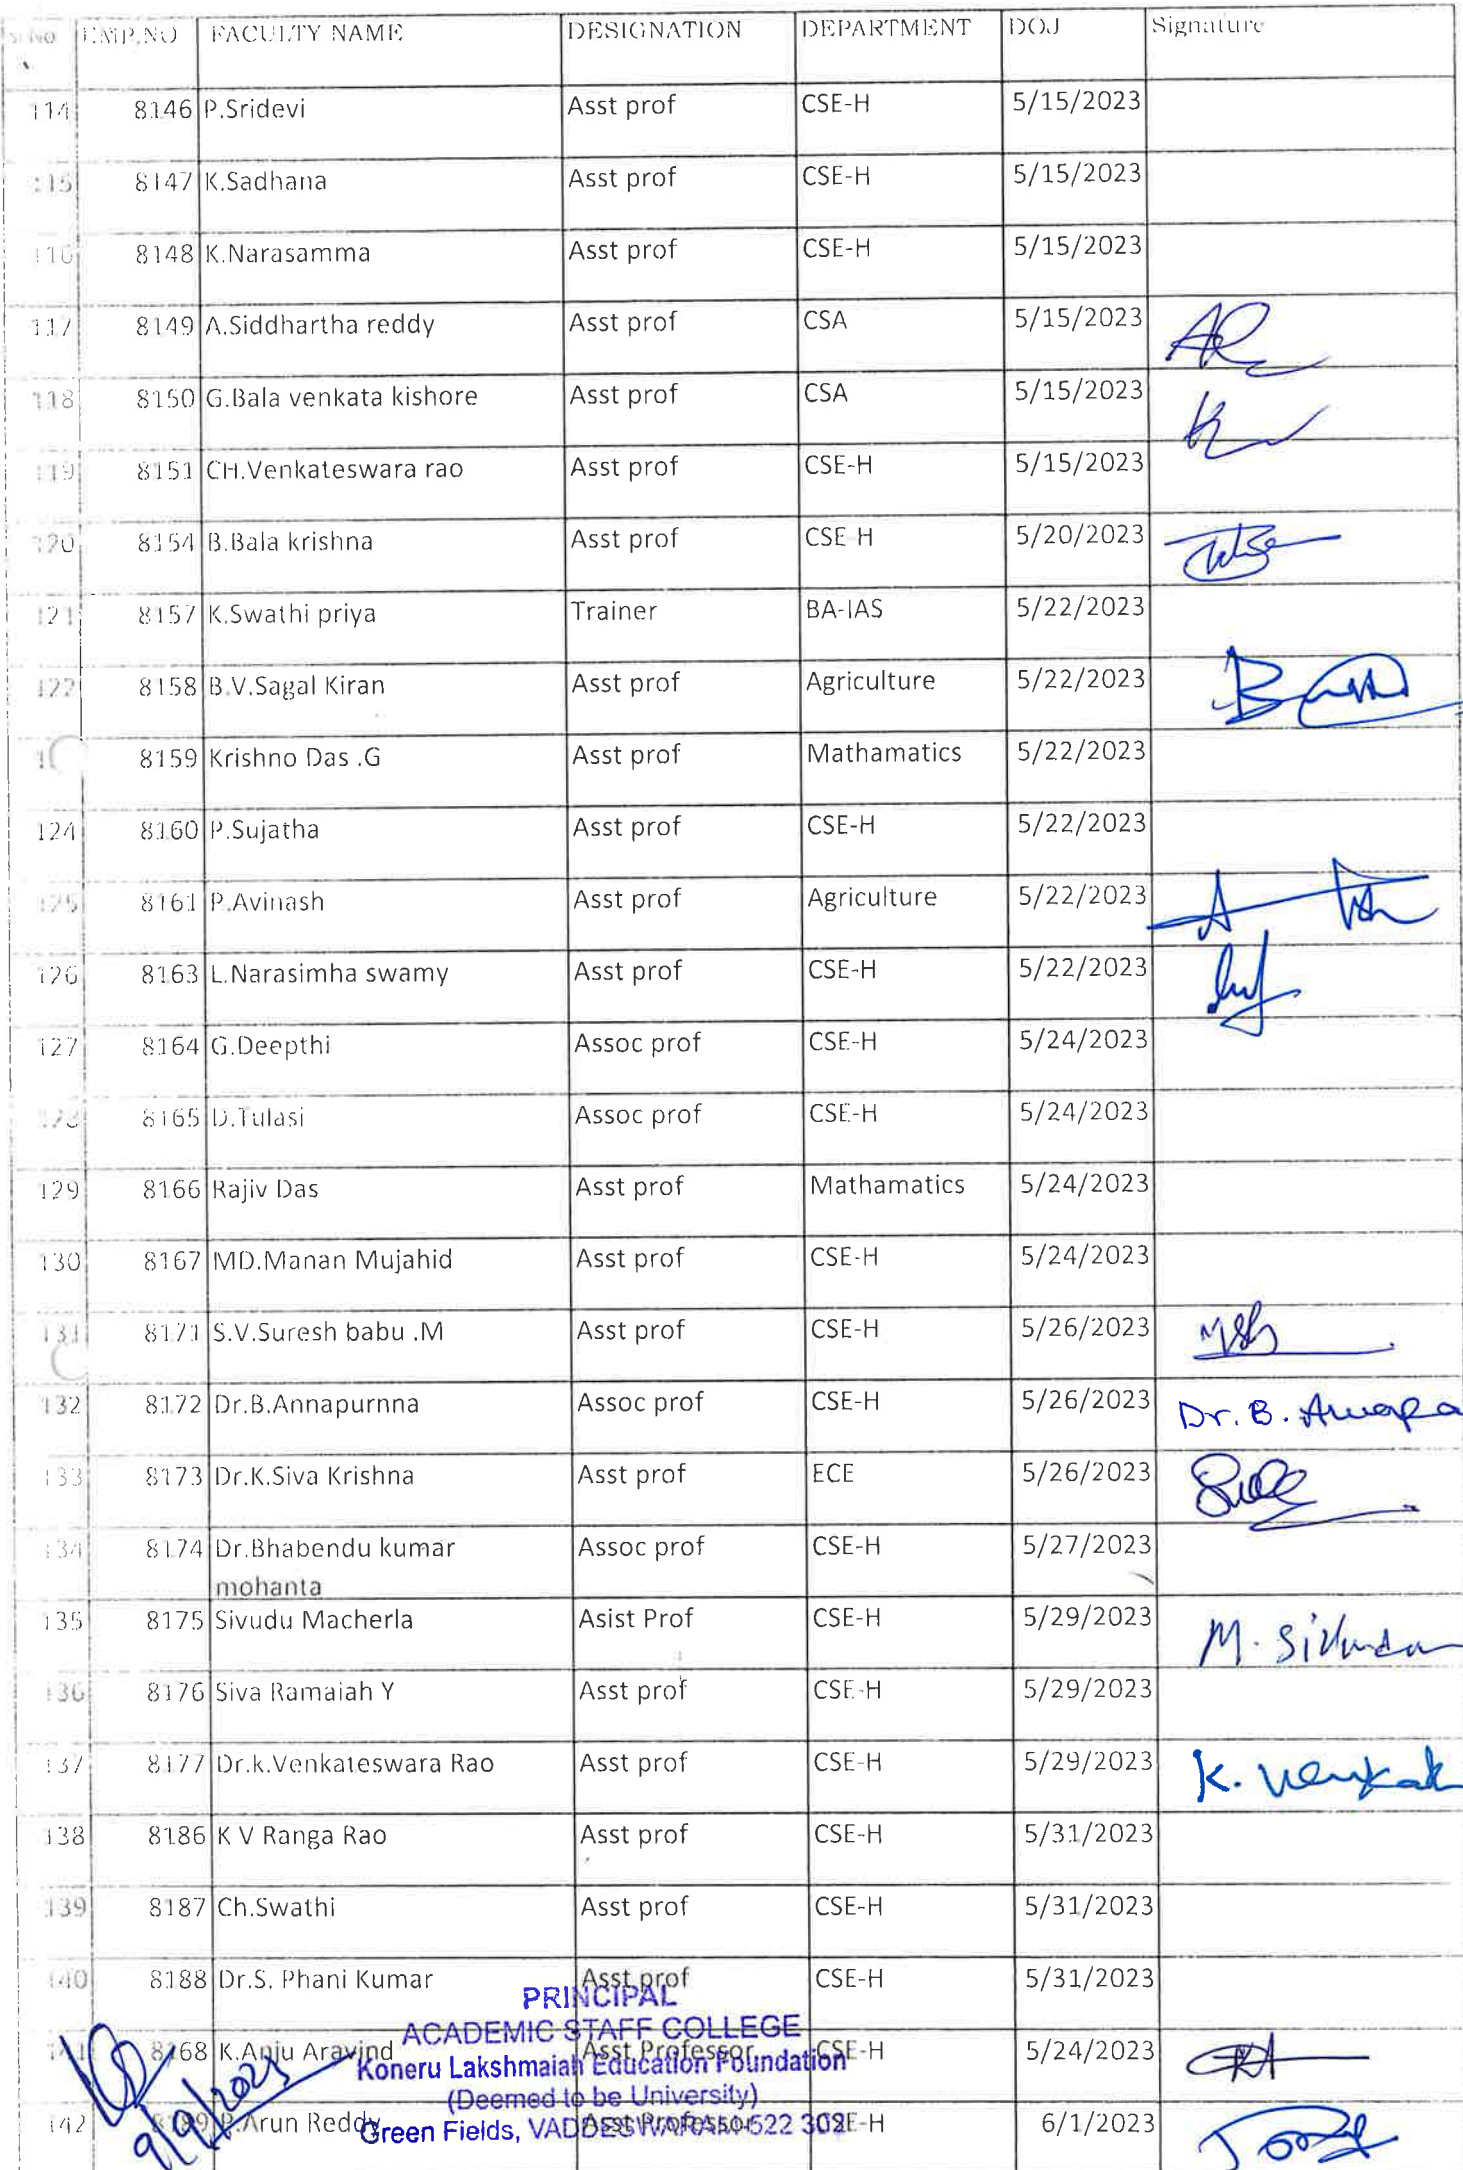 EMP.NO FACULTY NAME DESIGNATION DEPARTMENT DOJ Signature
114 8146 P.Sridevi Asst prof CSE-H 5/15/2023
115 8147 K.Sadhana Asst prof CSE-H 5/15/2023
116 8148 K.Narasamma Asst prof CSE-H 5/15/2023
117 8149 A.Siddhartha reddy Asst prof CSA 5/15/2023
118 8150 G.Bala venkata kishore Asst prof CSA 5/15/2023
119 8151 CH.Venkateswara rao Asst prof CSE-H 5/15/2023
120 8154 B.Bala krishna Asst prof CSE-H 5/20/2023
121 8157 K.Swathi priya Trainer BA-IAS 5/22/2023
122 8158 B.V.Sagal Kiran Asst prof Agriculture 5/22/2023
8159 Krishno Das .G Asst prof Mathamatics 5/22/2023
124 8160 P.Sujatha Asst prof CSE-H 5/22/2023
125 8161 P.Avinash Asst prof Agriculture 5/22/2023
126 8163 L.Narasimha swamy Asst prof CSE-H 5/22/2023
127 8164 G.Deepthi Assoc prof CSE-H 5/24/2023
128 8165 D.Tulasi Assoc prof CSE-H 5/24/2023
129 8166 Rajiv Das Asst prof Mathamatics 5/24/2023
130 8167 MD.Manan Mujahid Asst prof CSE-H 5/24/2023
131 8171 S.V.Suresh babu .M Asst prof CSE-H 5/26/2023
132 8172 Dr.B.Annapurnna Assoc prof CSE-H 5/26/2023 Dr. B.
133 8173 Dr.K.Siva Krishna Asst prof ECE 5/26/2023
134 8174 Dr.Bhabendu kumar Assoc prof CSE-H 5/27/2023
mohanta
135 8175 Sivudu Macherla Asist Prof CSE-H 5/29/2023 M.
136 8176 Siva Ramaiah Y Asst prof CSE-H 5/29/2023
137 8177 Dr.k.Venkateswara Rao Asst prof CSE-H 5/29/2023 K. Venkat
138 8186 K V Ranga Rao Asst prof CSE-H 5/31/2023
139 8187 Ch.Swathi Asst prof CSE-H 5/31/2023
140 8188 Dr.S. Phani Kumar Asst prof CSE-H 5/31/2023
PRINCIPAL
ACADEMIC STAFF COLLEGE
141 8168 K.Anju Aravind Asst Professor CSE-H 5/24/2023
Koneru Lakshmaiah Education Foundation
(Deemed to be University)
142 Arun Reddy Asst Professor CSE-H 6/1/2023
Green Fields, VADDESWARAM-522 302
9/9/2023